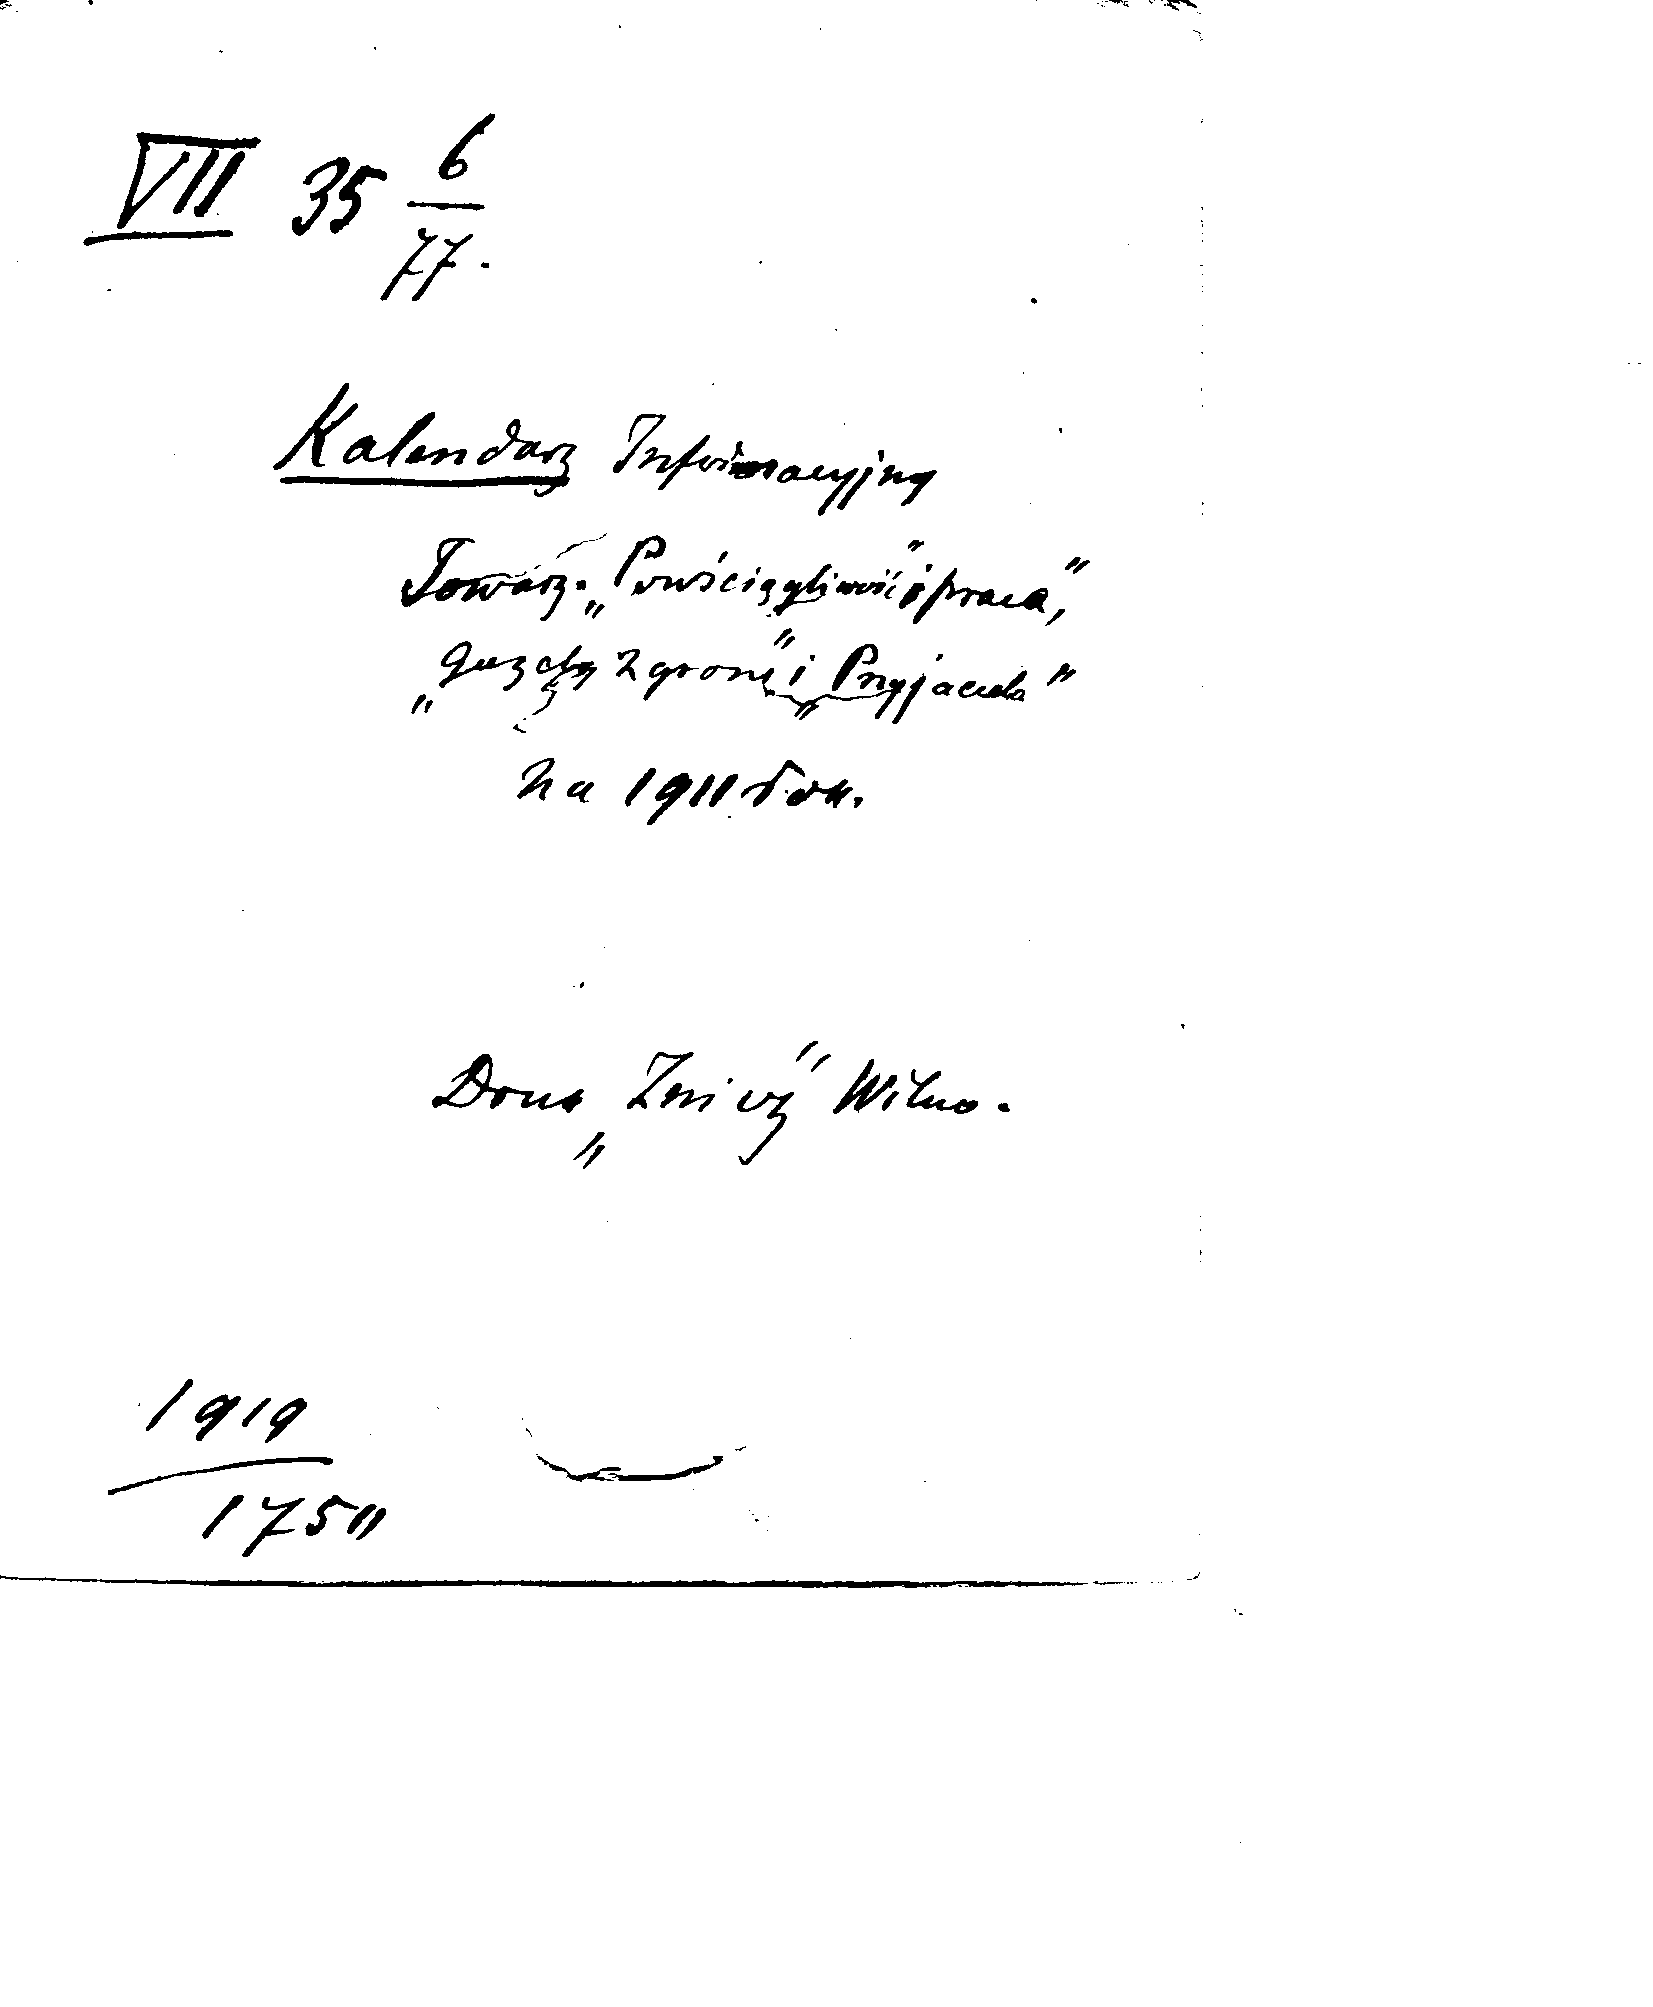 VII 35 6/77.
Kalendarz Informacyjny
Towarz. „Powściągliwość" i praca",
„Gazety 2 grosz" i „Przyjaciela"
na 1911 rok.
Druk „Znicz" Wilno.
1919
1750